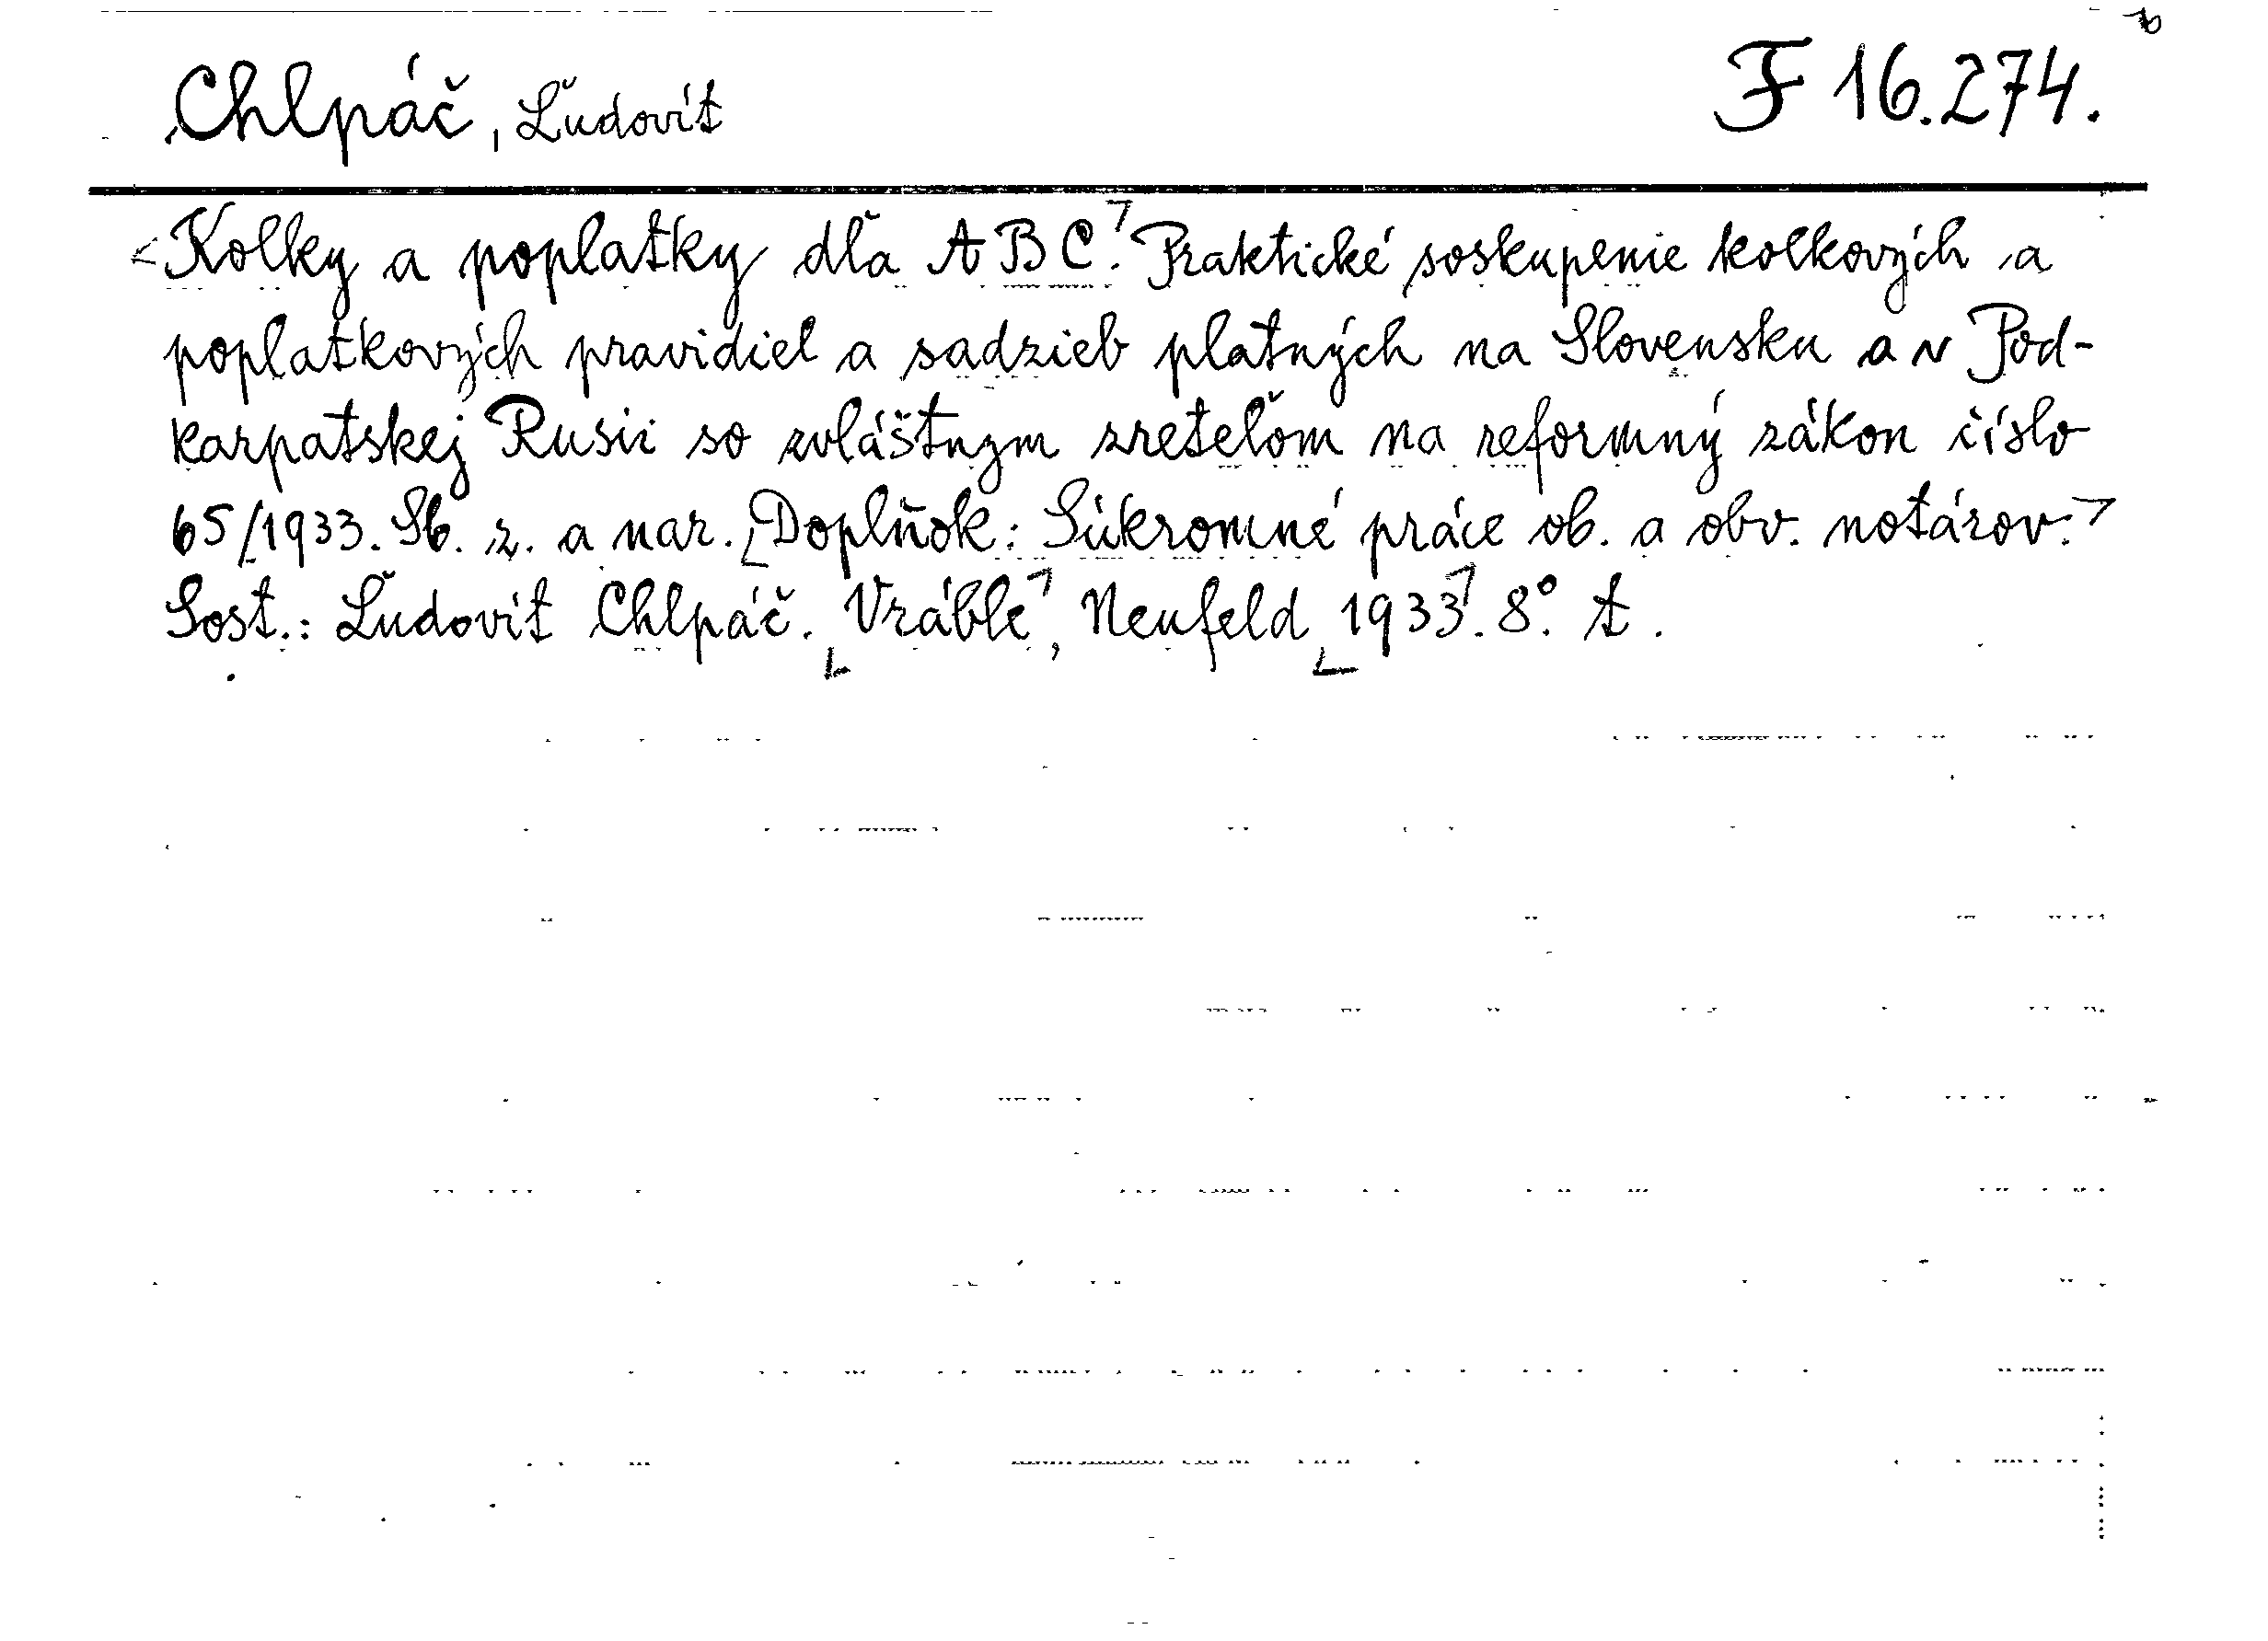 Chlpáč, Ľudovít F 16.274.
Kolky a poplatky dľa A B C. Praktické soskupenie kolkových a
poplatkových pravidiel a sadzieb platných na Slovensku a v Pod-
karpatskej Rusii so zvláštnym zreteľom na reformný zákon číslo
65/1933. Sb. z. a nar. Doplňok: Súkromné práce ob. a obv. notárov.
Sost.: Ľudovít Chlpáč. Vráble, Neufeld 1933. 8°. t.